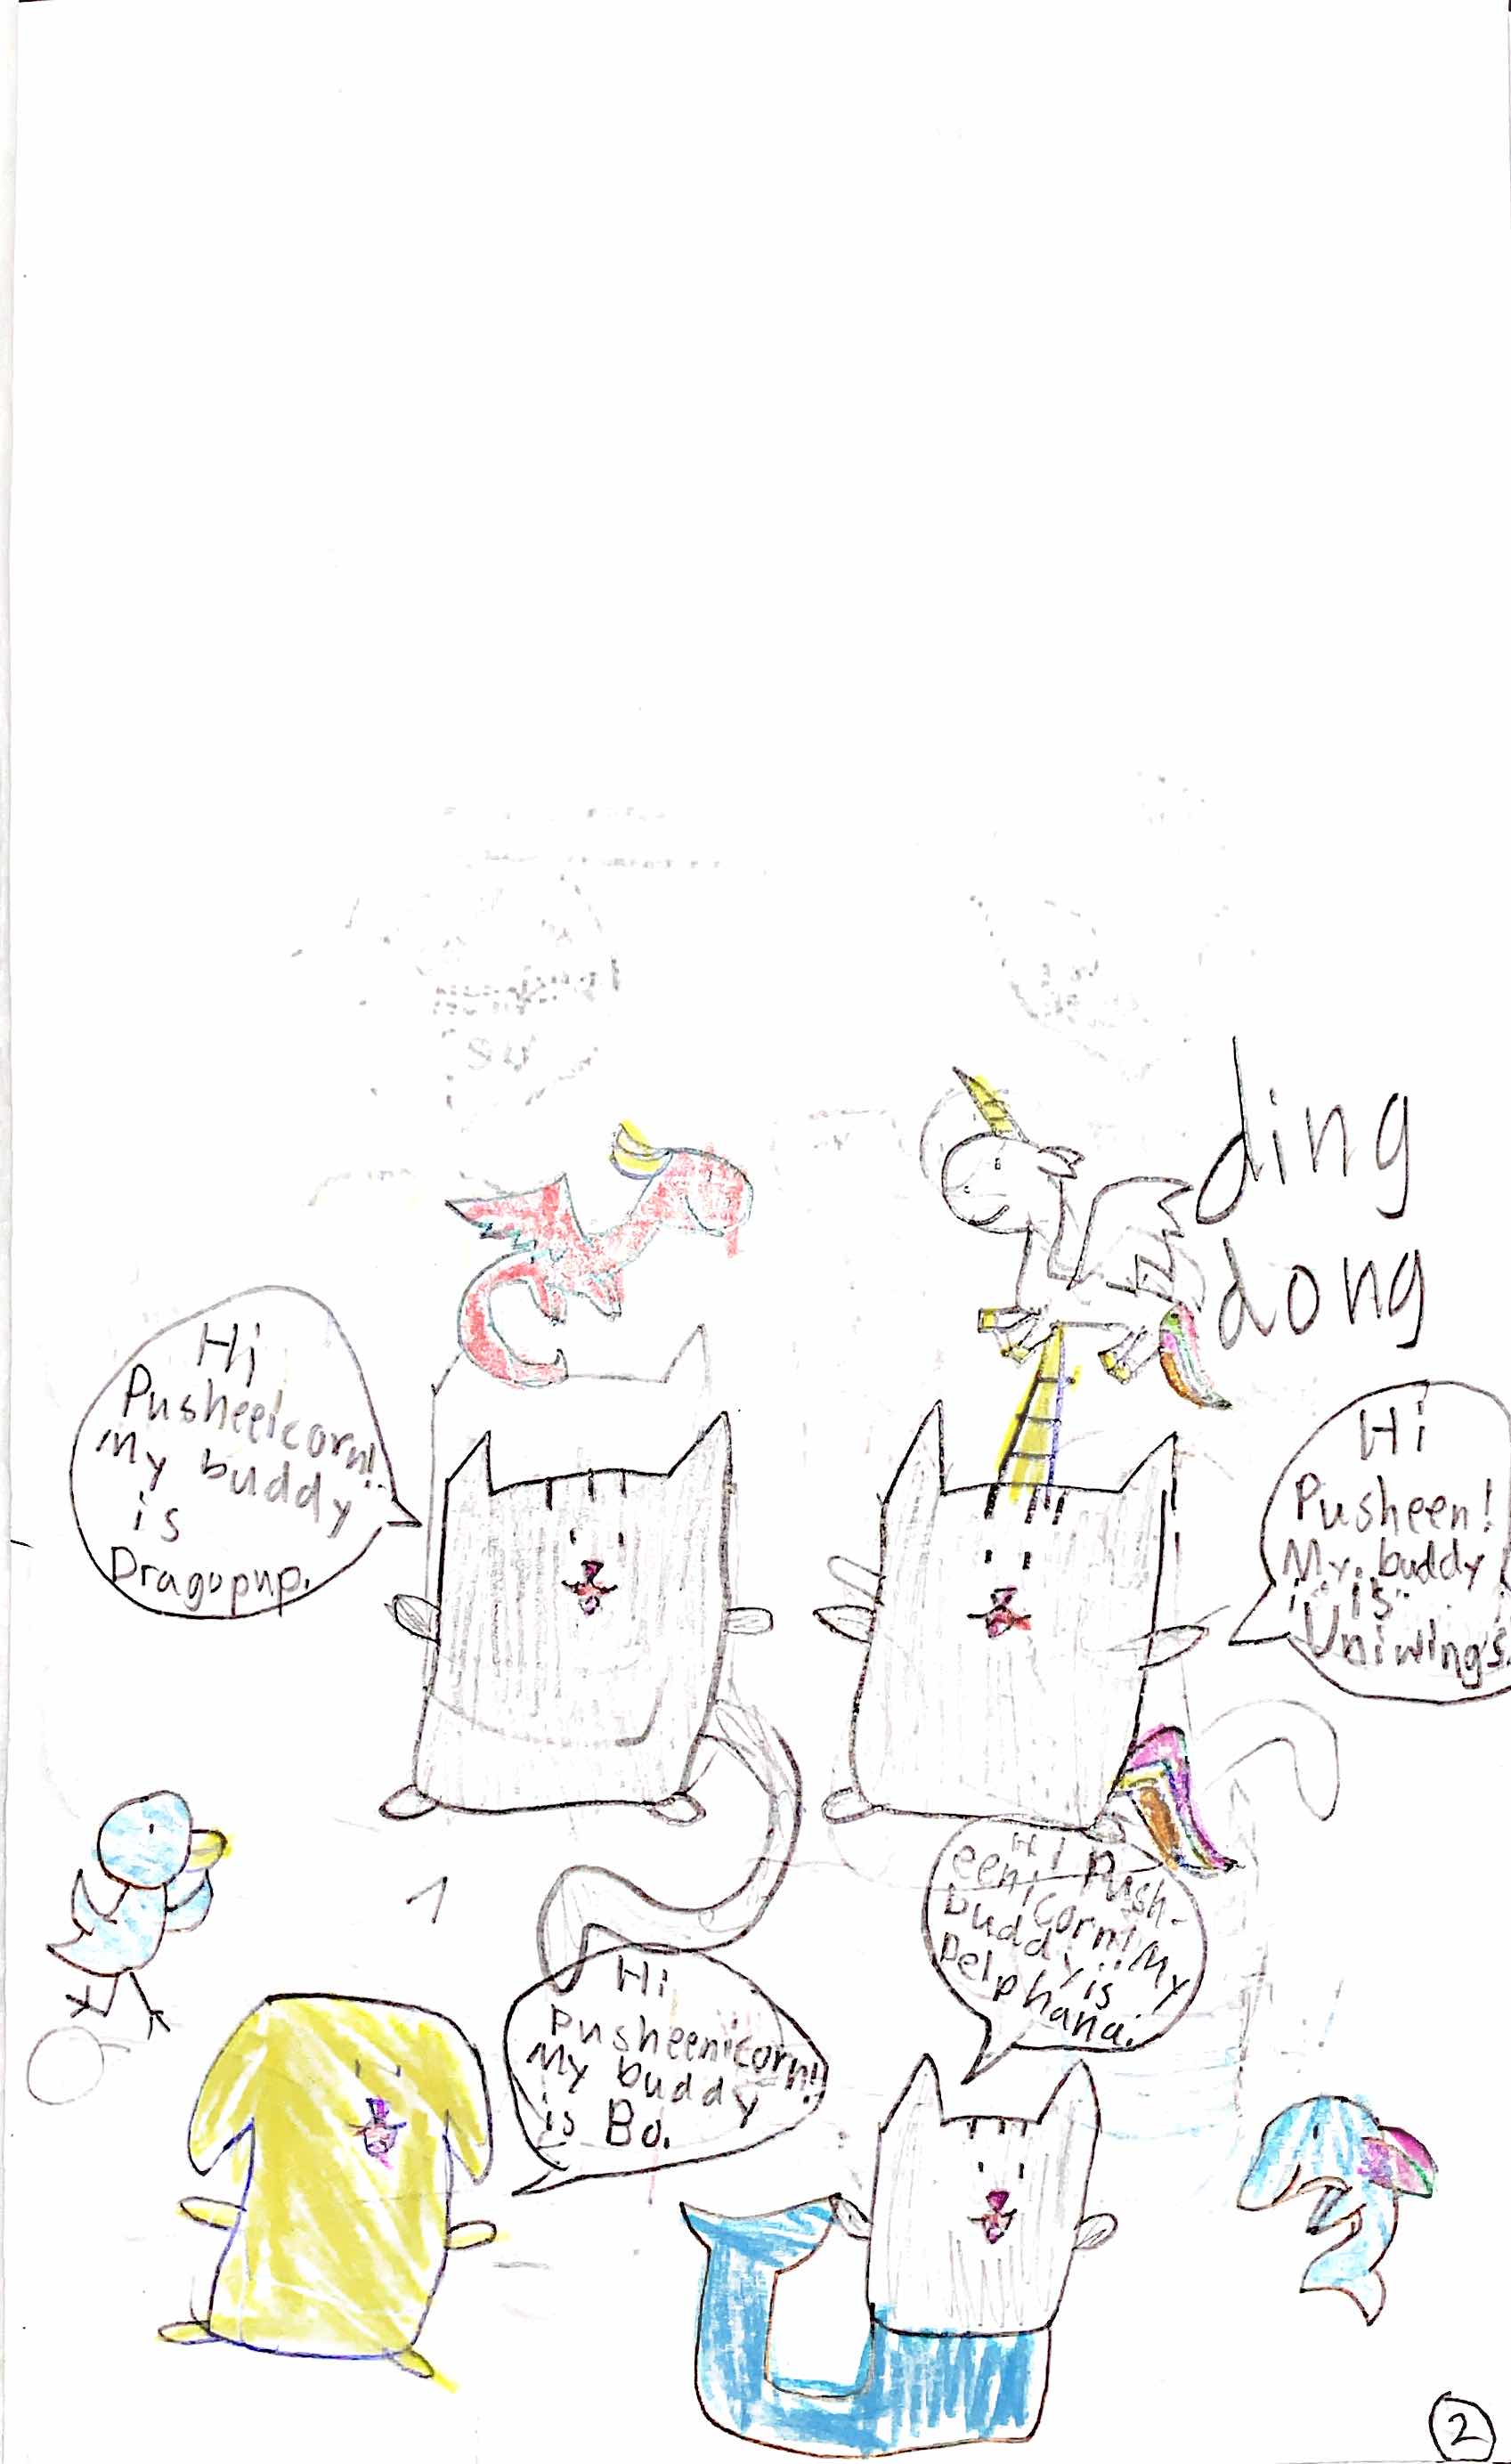 ding
dong
Hi
Pusheeicorn!
My buddy
is
Dragopup.
Hi
Pusheen!
My buddy
is
Uniwings.
Hi Push-
eenicorn! My
buddy is
Delphana.
Hi
Pusheenicorn!
My buddy
is Bo.
2